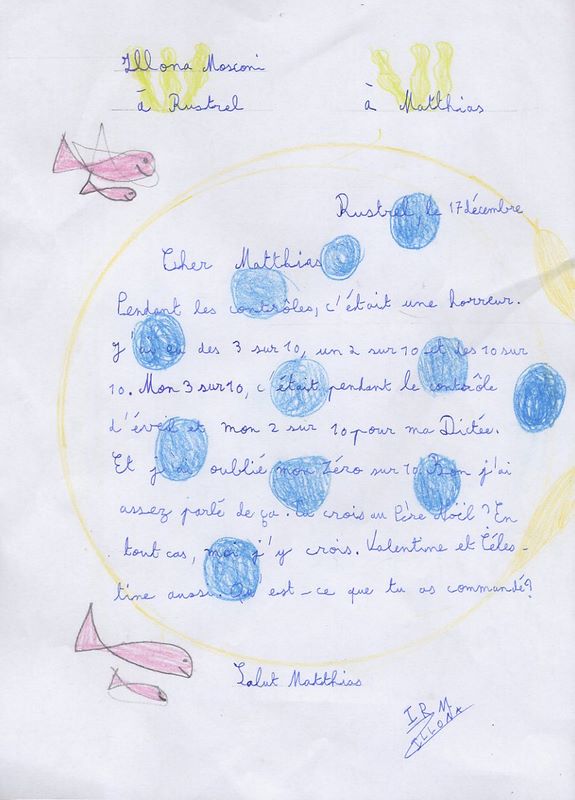 Illona Mosconi
à Rustrel
à Matthias
Rustrel, le 17 décembre
Cher Matthias
Pendant les contrôles, c'était une horreur.
J'ai eu des 3 sur 10, un 2 sur 10 et des 10 sur
10. Mon 3 sur 10, c'était pendant le contrôle
d'éveil et mon 2 sur 10 pour ma Dictée.
Et j'ai oublié mon Zéro sur 10. Bon j'ai
assez parlé de ça. Tu crois au Père Noël ? En
tout cas, moi j'y crois. Valentine et Céles-
tine aussi. Qu'est-ce que tu as commandé ?
Salut Matthias
I R M
ILLONA